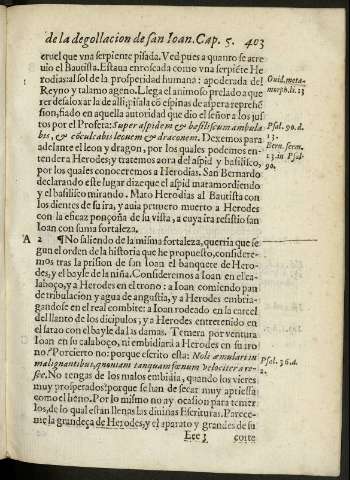 de la degollacion de san Ioan. Cap. 5. 403
cruel que vna serpiente pisada. Ved pues a quanto se atre
uio el Bautista. Estaua enroscada como vna serpiẽte He
rodias: al sol de la prosperidad humana: apoderada del
Reyno y talamo ageno. Llega el animoso prelado a que
rer desaloxarla de alli; pisala cõ espinas de aspera reprehẽ
sion, fiado en aquella autoridad que dio el señor a los jus
tos por el Profeta: Super aspidem & basiliscum ambula
bis, & cõculcabis leonem & draconem. Dexemos para
adelante el leon y dragon, por los quales podemos en-
tender a Herodes; y tratemos aora del aspid y basilisco,
por los quales conoceremos a Herodias. San Bernardo
declarando este lugar dize que el aspid mata mordiendo
y el basilisco mirando. Mato Herodias al Bautista con
los dientes de su ira, y auia primero muerto a Herodes
con la eficaz ponçoña de su vista, a cuya ira resistio san
Ioan con suma fortaleza.
Ouid. meta-
morph. li. 13
Psal. 90. d.
13.
Bern. serm.
13. in Psal-
90.
A 2 ¶ No saliendo de la misma fortaleza, querria que se
gun el orden de la historia que he propuesto, considere-
mos tras la prision de san Ioan el banquete de Hero-
des, y el bayle de la niña. Consideremos a Ioan en el ca-
laboço, y a Herodes en el trono: a Ioan comiendo pan
de tribulacion y agua de angustia, y a Herodes embria-
gandose en el real combite: a Ioan rodeado en la carcel
del llanto de los dicipulos, y a Herodes entretenido en
el sarao con el bayle da las damas. Temera por ventura
Ioan en su calaboço, ni embidiará a Herodes en su tro
no? Por cierto no: porque escrito esta: Noli æmulari in
malignantibus, quoniam tanquam fœnum velociter a re-
sce. No tengas de los malos embidia, quando los vieres
muy prosperados: porque se han de secar muy apriessa
como el heno. Por lo mismo no ay ocasion para temer
los, de lo qual estan llenas las diuinas Escrituras. Parece-
me la grandeça de Herodes, y el aparato y grandes de su
Psal. 36. d.
2.
Eee 3 corte